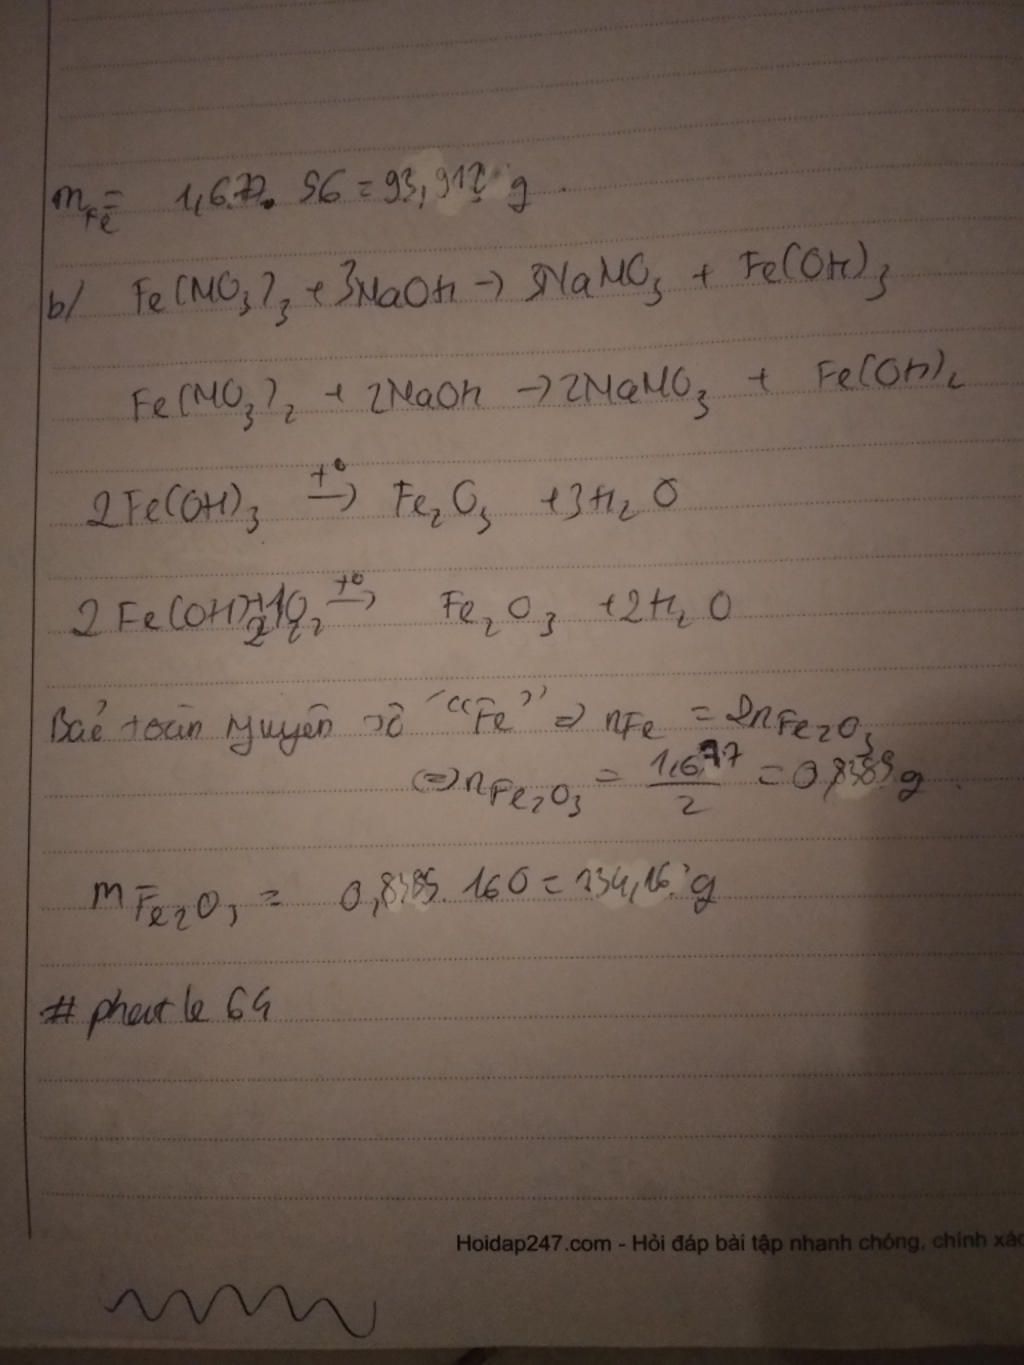 m Fe = 1,677. 56 = 93,912 g.
b/ Fe(NO₃)₃ + 3NaOH → 3NaNO₃ + Fe(OH)₃
Fe(NO₃)₂ + 2NaOH → 2NaNO₃ + Fe(OH)₂
2Fe(OH)₃ t° → Fe₂O₃ + 3H₂O
2Fe(OH)₂ + ½O₂ t° → Fe₂O₃ + 2H₂O
Bảo toàn nguyên tố "Fe" ⇒ nFe = 2nFe₂O₃
⇔ nFe₂O₃ = 1,677/2 = 0,8385 g.
mFe₂O₃ = 0,8385. 160 = 134,16 g
# phatle 64
Hoidap247.com - Hỏi đáp bài tập nhanh chóng, chính xác